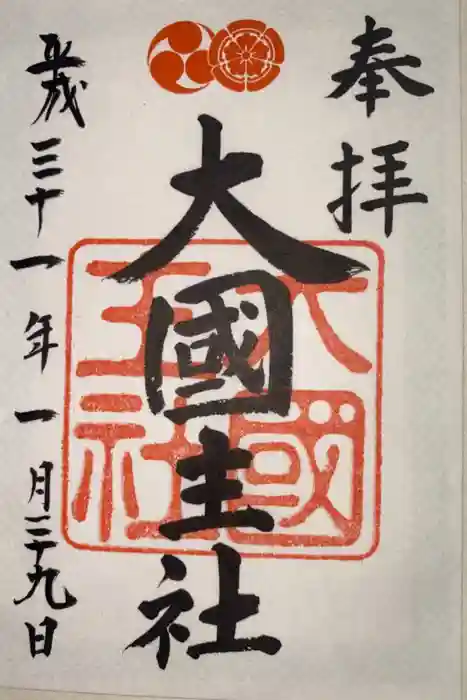 奉拝
大國主社
大國主社
平成三十一年一月二十九日